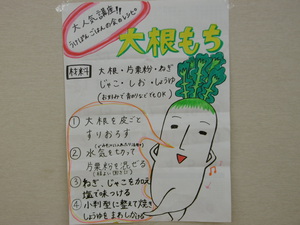 大人気講座!!
大根もち
材料
大根・片栗粉・ねぎ
じゃこ・しお・しょうゆ
(お好みで青のりなどでもOK)
① 大根を皮ごと
すりおろす
② 水気を切って
片栗粉を混ぜる
③ ねぎ、じゃこを加え
塩で味つける
④ 小判型に整えて焼き
しょうゆをまわしかける